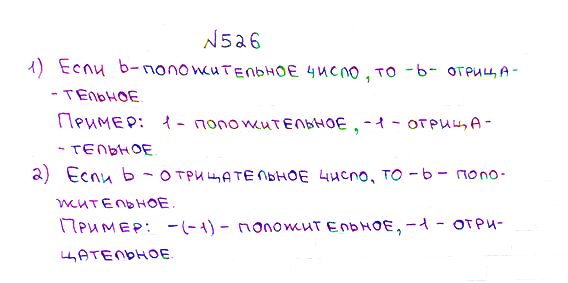 №526
1) Если b-положительное число, то -b- отрица-
-тельное.
Пример: 1 - положительное, -1 - отрица-
-тельное
2) Если b - отрицательное число, то -b - поло-
жительное.
Пример: -(-1) - положительное, -1 - отри-
цательное.